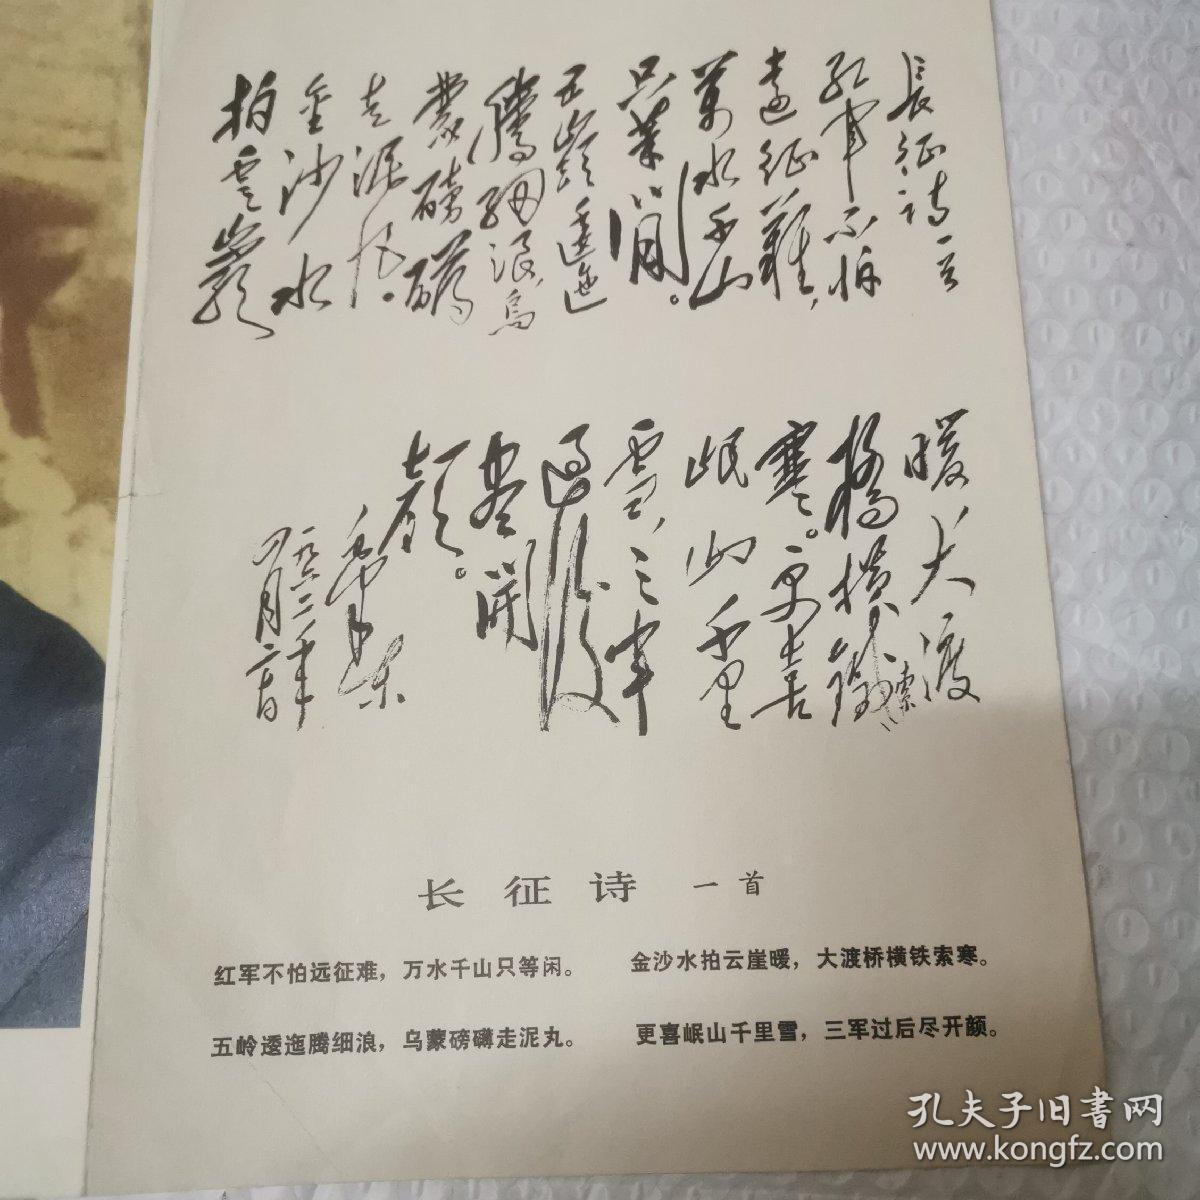 長征诗一首
红軍不怕
遠征難，
萬水千山
只等閒。
五嶺逶迤
騰細浪，烏
蒙磅礴
走泥丸。
金沙水
拍雲崖
暖，大渡
橋横鐵索
寒。更喜
岷山千里
雪，三軍
過後
尽開
顔。
毛泽东
一九六二年
四月二十日
长征诗 一首
红军不怕远征难，万水千山只等闲。
五岭逶迤腾细浪，乌蒙磅礴走泥丸。
金沙水拍云崖暖，大渡桥横铁索寒。
更喜岷山千里雪，三军过后尽开颜。
孔夫子旧书网
www.kongfz.com